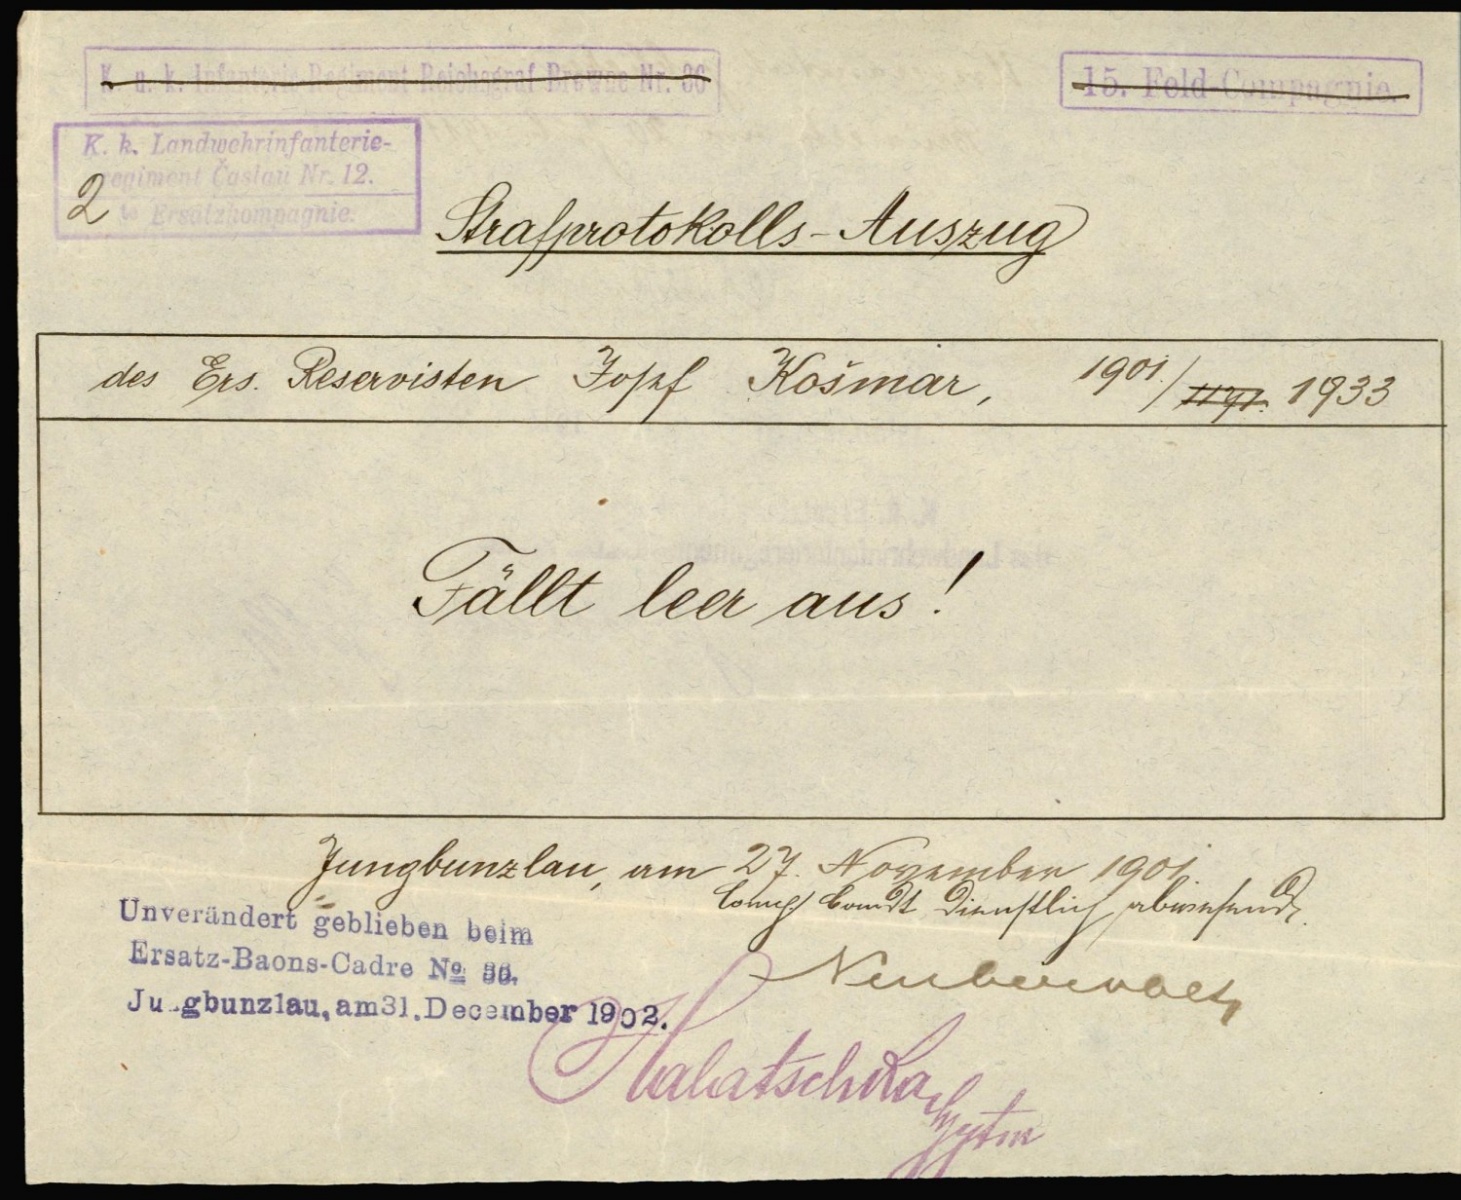 K. u. k. Infanterie-Regiment Reichsgraf Browne Nr. 36
15. Feld-Compagnie.
K. k. Landwehrinfanterie-
regiment Časlau Nr. 12.
2 te Ersatzkompagnie.
Strafprotokolls-Auszug
des Ers. Reservisten Josef Košmar, 1901/ 1933
Fällt leer aus!
Jungbunzlau, am 27. November 1901.
Comp. Comdt dienstlich abwesend,
Unverändert geblieben beim
Ersatz-Baons-Cadre No 36.
Jungbunzlau, am 31. December 1902.